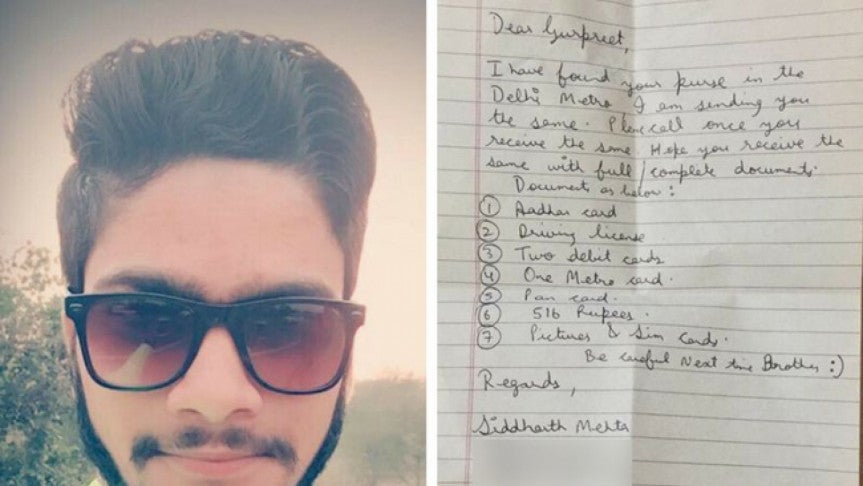 Dear Gurpreet,
I have found your purse in the
Delhi Metro I am sending you
the same. Please call once you
receive the same. Hope you receive the
same with full/complete documents.
Documents as below:
① Aadhar card
② Driving license
③ Two debit cards
④ One Metro card.
⑤ Pan card.
⑥ 516 Rupees.
⑦ Pictures & Sim cards.
Be careful Next time Brother :)
Regards,
Siddharth Mehta